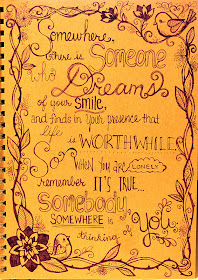 Somewhere,
there is Someone
who Dreams
of your Smile,
and finds in your presence that
life is WORTHWHILE
So when you are LONELY
remember IT'S TRUE...
Somebody,
SOMEWHERE is
thinking of You.